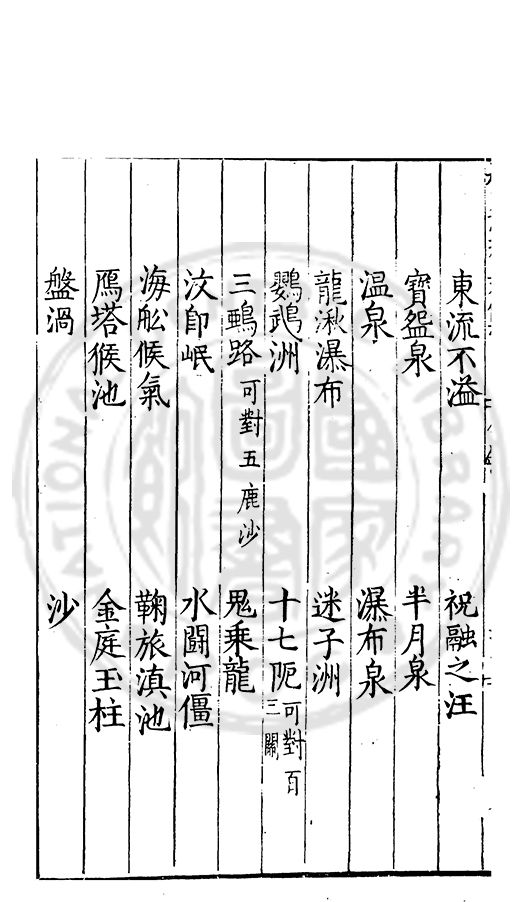 東流不溢 祝融之汪
寶盌泉 半月泉
温泉 瀑布泉
龍湫瀑布 迷子洲
鸚鵡洲 十七阨可對百三關
三鵶路可對五鹿沙 鬼乘龍
汶卽岷 水鬭河僵
海舩候氣 鞠旅滇池
鴈塔候池 金庭玉柱
盤渦 沙